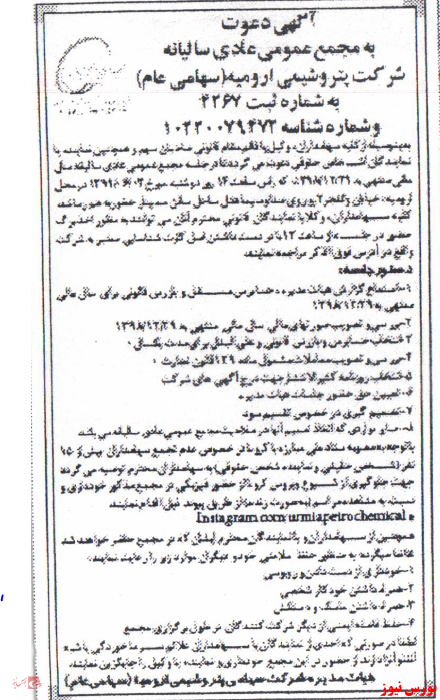 آگهی دعوت
به مجمع عمومی عادی سالیانه
شرکت پتروشیمی ارومیه (سهامی عام)
به شماره ثبت ۴۲۶۷
و شماره شناسه ۱۰۲۲۰۰۷۹۴۷۲
بدینوسیله از کلیه سهامداران، وکیل یا قائم مقام قانونی صاحبان سهم و همچنین نماینده یا
نمایندگان اشخاص حقوقی دعوت می گردد تا در جلسه مجمع عمومی عادی سالیانه سال
مالی منتهی به ۱۳۹۸/۱۲/۲۹ که راس ساعت ۱۴ روز دوشنبه مورخ در محل
ارومیه: خیابان حضور بهم رسانند.
کلیه سهامداران، وکلا یا نمایندگان قانونی محترم آنان می توانند به منظور اخذ برگ
حضور در جلسه از ساعت ۱۲ با در دست داشتن اصل کارت شناسایی معتبر به شرکت
واقع در آدرس فوق الذکر مراجعه نمایند.
دستور جلسه:
۱-استماع گزارش هیئت مدیره و حسابرس مستقل و بازرس قانونی برای سال مالی
منتهی به ۱۳۹۸/۱۲/۲۹
۲-بررسی و تصویب صورتهای مالی سال مالی منتهی به ۱۳۹۸/۱۲/۲۹
۳-انتخاب حسابرس و بازرس قانونی و علی البدل برای مدت یکسال
۴-بررسی و تصویب معاملات مشمول ماده ۱۲۹ قانون تجارت
۵-انتخاب روزنامه کثیرالانتشار جهت درج آگهی های شرکت
۶-تعیین حق حضور جلسات هیات مدیره
۷-تصمیم گیری در خصوص تقسیم سود
۸-سایر مواردی که اتخاذ تصمیم آنها در صلاحیت مجمع عمومی عادی سالیانه می باشد
باتوجه به مصوبه ستاد ملی مبارزه با کرونا در خصوص عدم تجمع سهامداران بیش از ۱۵
نفر (شخص حقیقی و نماینده شخص حقوقی) به سهامداران محترم توصیه می گردد
جهت جلوگیری از شیوع ویروس کرونا از حضور فیزیکی در مجمع مذکور خودداری و
نسبت به مشاهده مراسم (به صورت زنده) از طریق پیوند ذیل اقدام نمایند.
Instagram.com/urmiapetrochemical
همچنین از سهامداران و یا نمایندگان محترم ایشان که در مجمع حاضر خواهند شد
تقاضا میگردد به منظور حفظ سلامتی خود و دیگران موارد زیر را رعایت نمایند:
۱-خودداری از دست دادن و روبوسی
۲-همراه داشتن خودکار شخصی
۳-همراه داشتن ماسک و دستکش
۴-حفظ فاصله ایمنی از دیگر شرکت کنندگان در طول برگزاری مجمع
لطفا در صورتی که احدی از نمایندگان یا سهامداران علائم سرماخوردگی یا شبه
آنفلوآنزا دارند از حضور در این مجمع خودداری و نماینده یا وکیل را جایگزین نمایند.
هیات مدیره شرکت صنایع پتروشیمی ارومیه (سهامی عام)
بورس نیوز